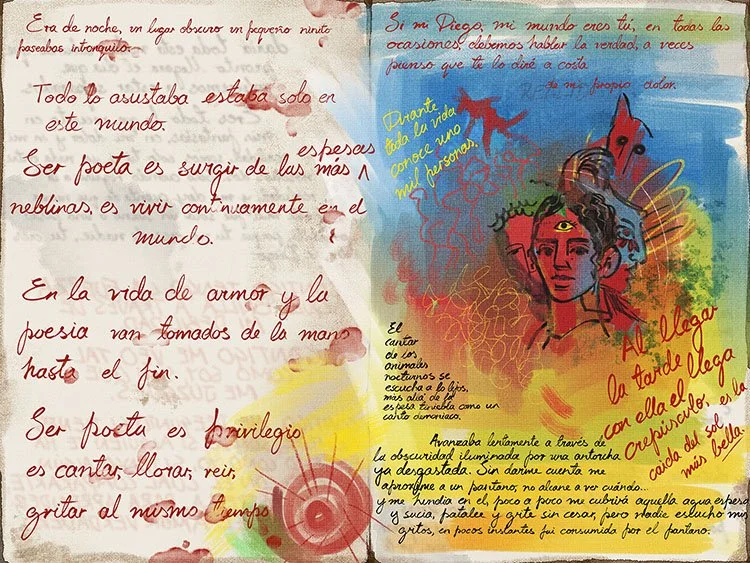 Era de noche, un lugar obscuro un pequeño ninito
paseabas intranquilo.
Todo lo asustaba estaba solo en
este mundo.
espesas
Ser poeta es surgir de las más ∧
neblinas, es vivir continuamente en el
mundo.
En la vida de armor y la
poesia van tomados de la mano
hasta el fin.
Ser poeta es privilegio
es cantar, llorar, reir,
gritar al mismo tiempo
Si mi Diego, mi mundo eres tú, en todas las
ocasiones, debemos hablar la verdad, a veces
pienso que te lo diré a costa
de mi propio dolor.
Dirante
toda la vida
conoce uno
mil personas.
El
cantar
de los
animales
nocturnos se
escucha a lo lejos,
más alla de la
espesa tuniebla como un
canto demoniaco.
Al llegar
la tarde
con ella el llega
crepúsculor, es la
caida del sol
más bella.
Avanzaba lentamente a través de
la obscuridad iluminada por una antorcha
ya desgastada. Sin darme cuenta me
aproxime a un pantano, no alcane a ver cuándo...
y me hundia en el, poco a poco me cubrirá aquella agua espesa
y sucia, patalee y grite sin cesar, pero nadie escucho mis
gritos, en pocos instantes fui consumida por el pantano.